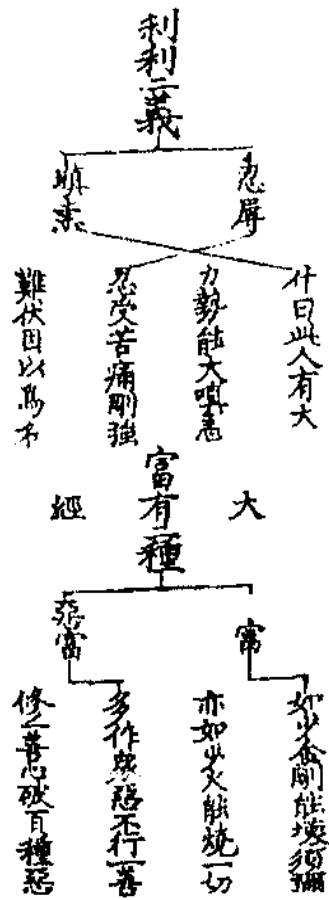 刹利二義
忍辱
嗔恚
什曰此人有大
力勢能大嗔恚
忍受苦痛剛強
難伏因以為名
大
富有種
經
富
富
如少金剛能壞須彌
亦如少火能燒一切
多作衆惡不行一善
修一善心破百種惡